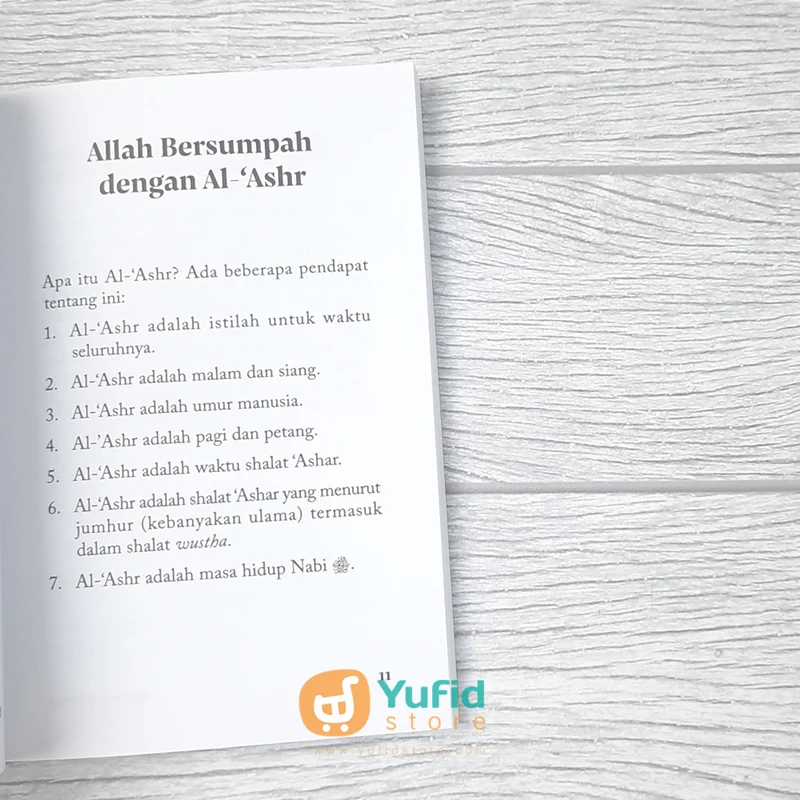 Allah Bersumpah
dengan Al-‘Ashr
Apa itu Al-‘Ashr? Ada beberapa pendapat
tentang ini:
1. Al-‘Ashr adalah istilah untuk waktu
seluruhnya.
2. Al-‘Ashr adalah malam dan siang.
3. Al-‘Ashr adalah umur manusia.
4. Al-’Ashr adalah pagi dan petang.
5. Al-‘Ashr adalah waktu shalat ‘Ashar.
6. Al-‘Ashr adalah shalat ‘Ashar yang menurut
jumhur (kebanyakan ulama) termasuk
dalam shalat wustha.
7. Al-‘Ashr adalah masa hidup Nabi ﷺ.
11
Yufid
store
www.yufidstore.com